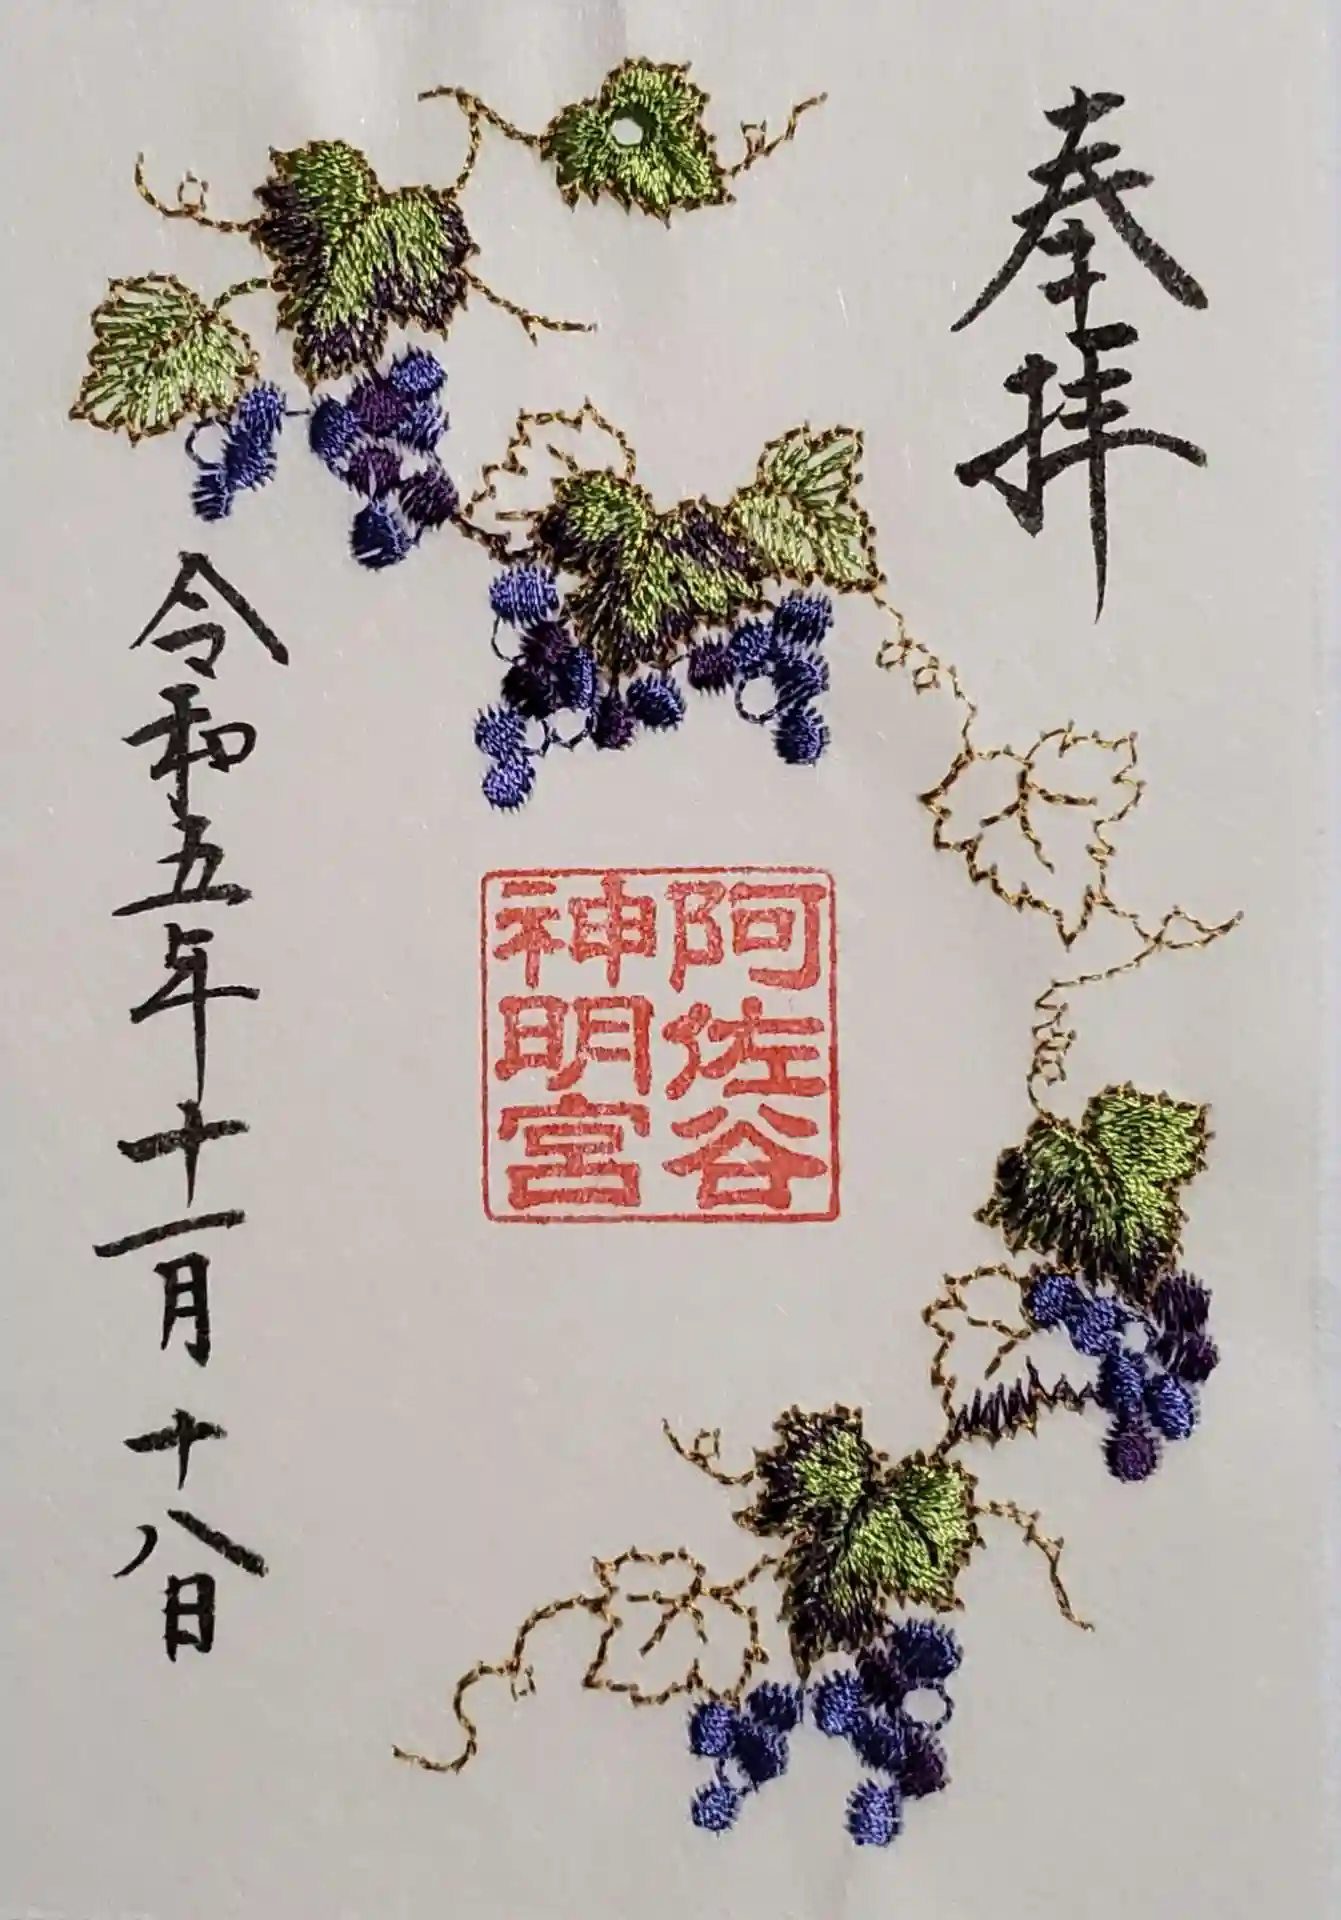 奉拝
阿佐谷
神明宮
令和五年十一月十八日